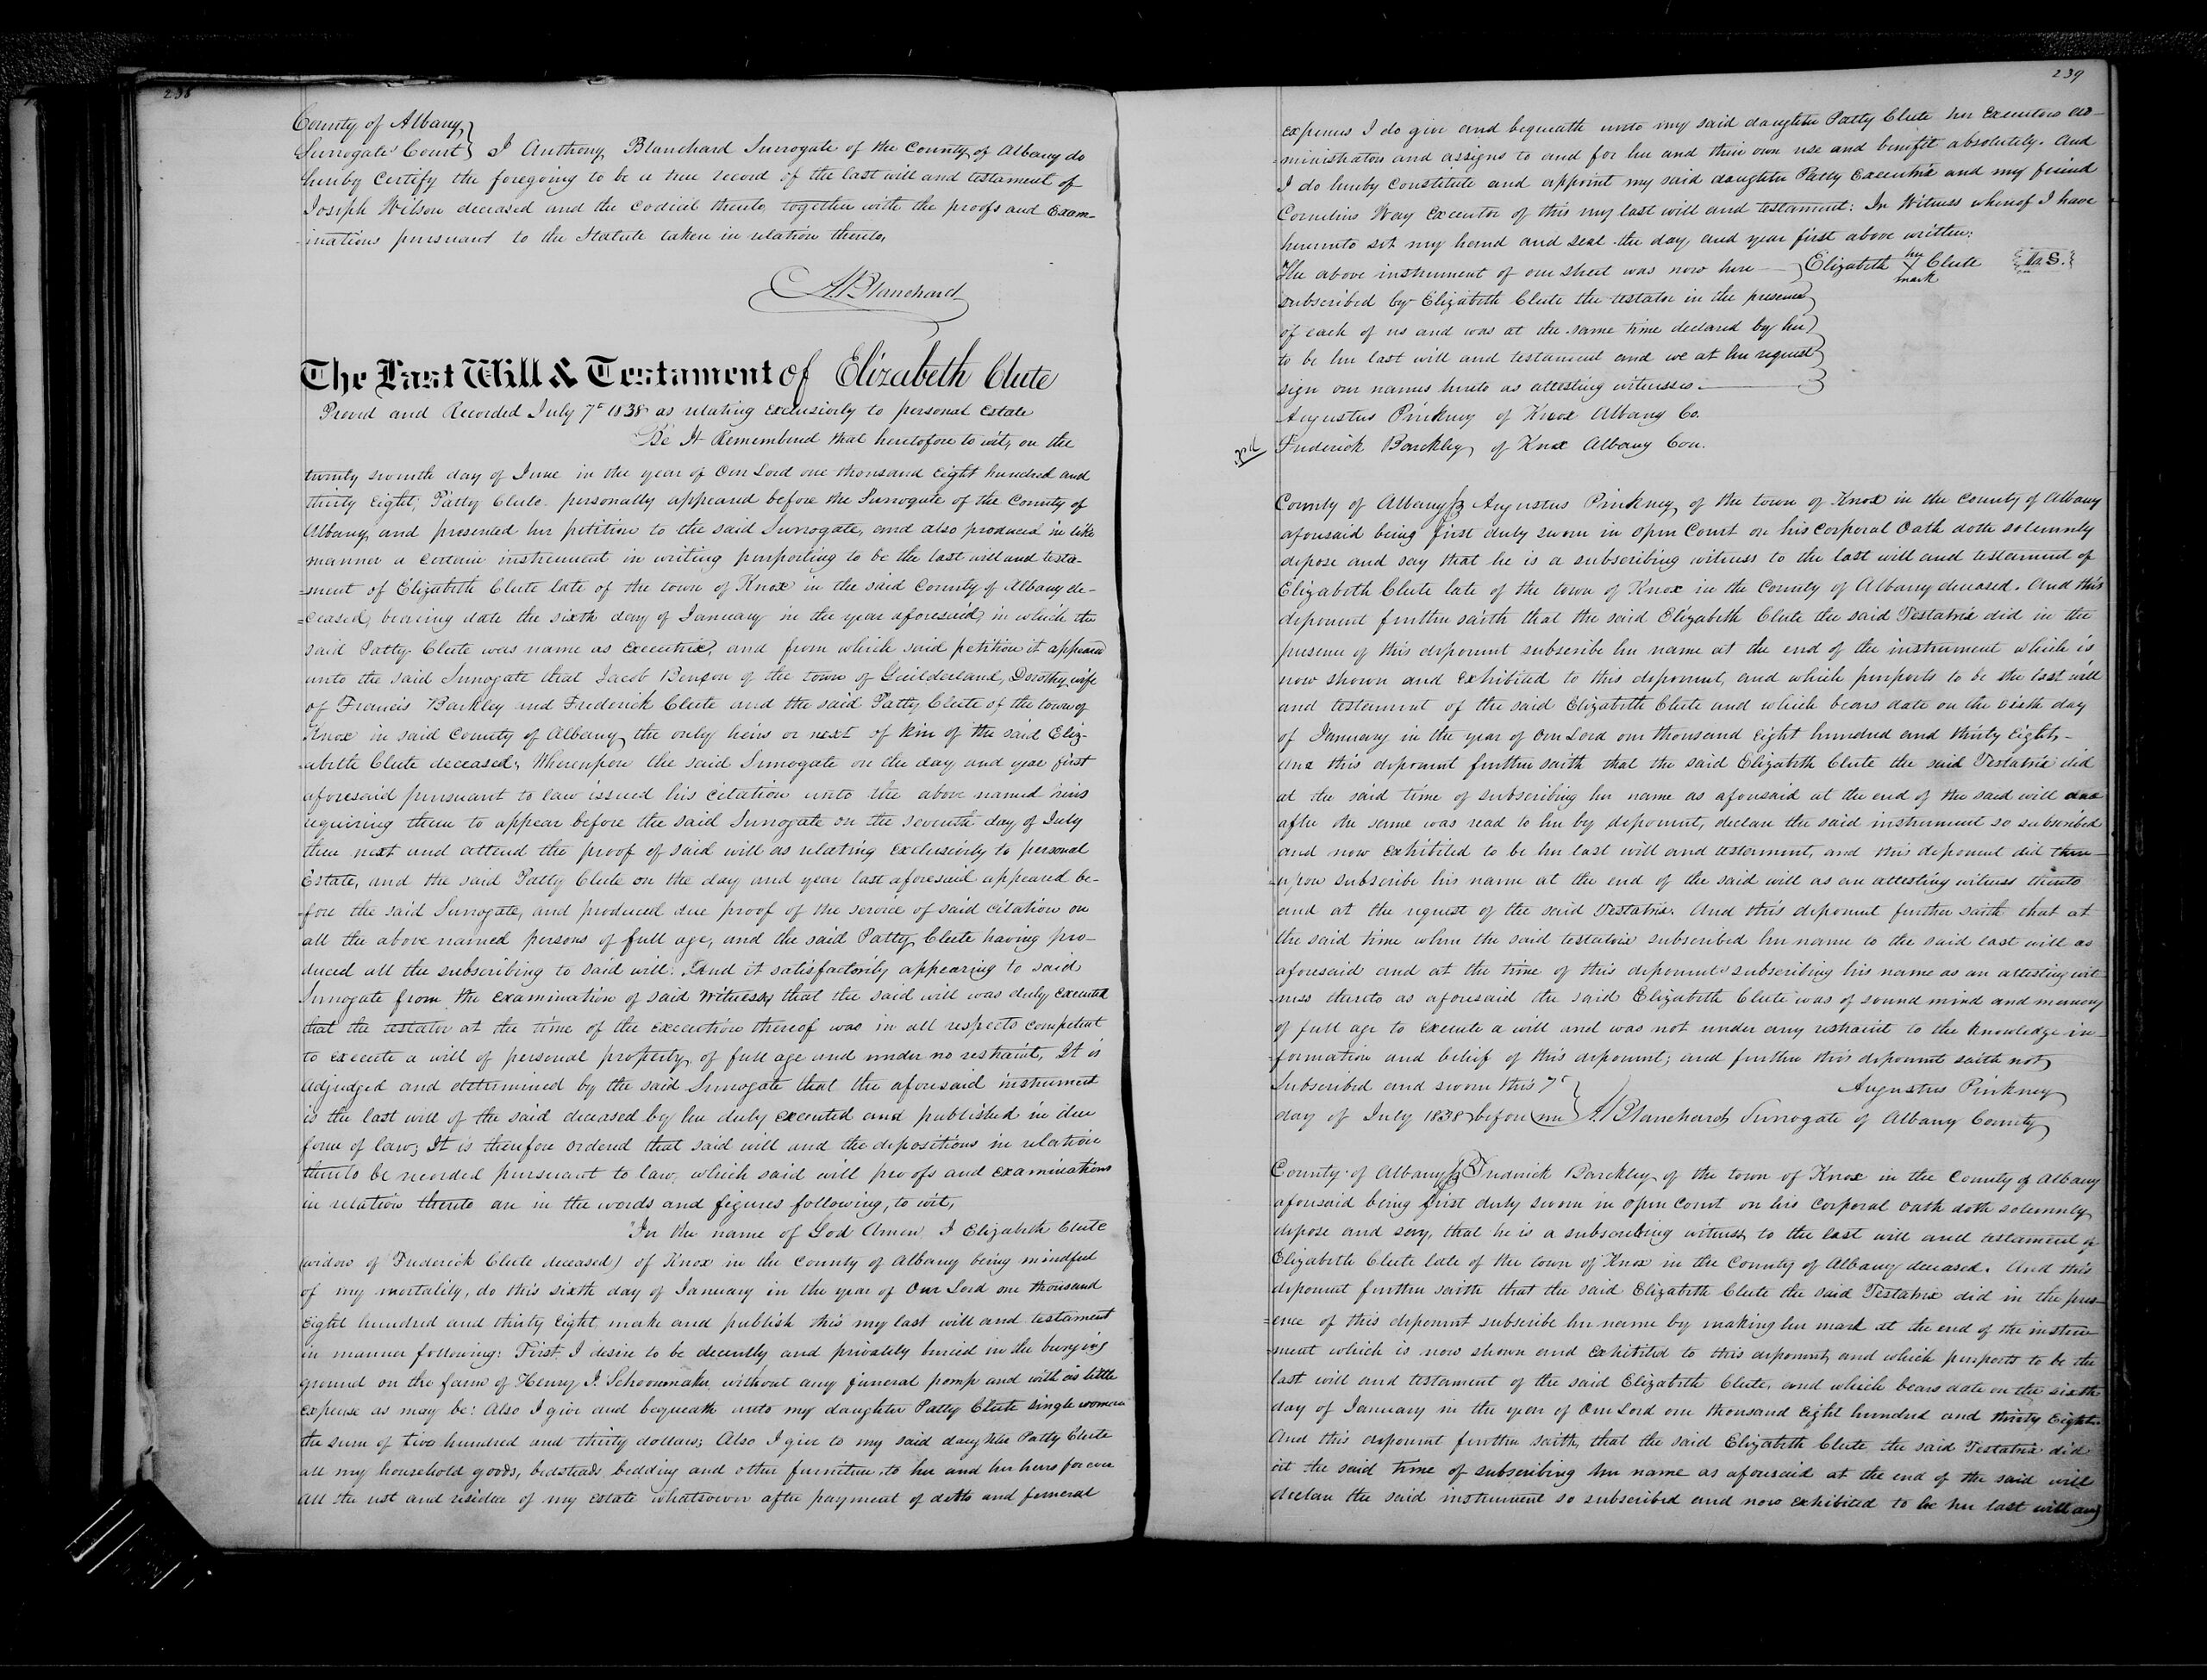 238
County of Albany }
Surrogates Court } I Anthony Blanchard Surrogate of the County of Albany do
hereby Certify the foregoing to be a true record of the last will and testament of
Joseph Wilson deceased and the codicil thereto, together with the proofs and Exam-
-inations pursuant to the Statute taken in relation thereto,
A. Blanchard
The Last Will & Testament of Elizabeth Clute
Proved and Recorded July 7th 1838 as relating exclusively to personal Estate
Be It Remembered that heretofore to wit, on the
twenty seventh day of June in the year of Our Lord one thousand Eight hundred and
thirty Eight, Patty Clute personally appeared before the Surrogate of the County of
Albany and presented her petition to the said Surrogate, and also produced in like
manner a certain instrument in writing purporting to be the last will and testa-
-ment of Elizabeth Clute late of the town of Knox in the said County of Albany de-
=ceased, bearing date the sixth day of January in the year aforesaid, in which the
said Patty Clute was name as Executrix, and from which said petition it appeared
unto the said Surrogate that Jacob Benson of the town of Guilderland, Dorothy wife
of Francis Barkley and Frederick Clute and the said Patty Clute of the town of
Knox in said County of Albany the only heirs or next of kin of the said Eliz-
-abeth Clute deceased; Whereupon the said Surrogate on the day and year first
aforesaid pursuant to law issued his citation unto the above named heirs
requiring them to appear before the said Surrogate on the seventh day of July
then next and attend the proof of said will as relating exclusively to personal
Estate, and the said Patty Clute on the day and year last aforesaid appeared be-
-fore the said Surrogate, and produced due proof of the service of said citation on
all the above named persons of full age, and the said Patty Clute having pro-
duced all the subscribing to said will: And it satisfactorily appearing to said
Surrogate from the examination of said witnesses that the said will was duly executed
that the testator at the time of the execution thereof was in all respects competent
to execute a will of personal property, of full age and under no restraint, It is
adjudged and determined by the said Surrogate that the aforesaid instrument
is the last will of the said deceased by her duly executed and published in due
form of law; It is therefore ordered that said will and the depositions in relation
thereto be recorded pursuant to law, which said will proofs and examinations
in relation thereto are in the words and figures following, to wit,
"In the name of God Amen I Elizabeth Clute
(widow of Frederick Clute deceased) of Knox in the County of Albany being mindful
of my mortality, do this sixth day of January in the year of Our Lord one thousand
Eight hundred and thirty Eight make and publish this my last will and testament
in manner following: First, I desire to be decently and privately buried in the burying
ground on the farm of Henry I. Schoonmaker without any funeral pomp and with as little
expense as may be: Also I give and bequeath unto my daughter Patty Clute single woman
the sum of two hundred and thirty dollars; Also I give to my said daughter Patty Clute
all my household goods, bedsteads bedding and other furniture, to her and her heirs forever
All the rest and residue of my estate whatsoever after payment of debts and funeral
239
expenses I do give and bequeath unto my said daughter Patty Clute her Executors ad-
-ministrators and assigns to and for her and their own use and benifit absolutely. And
I do hereby Constitute and appoint my said daughter Patty Executrix and my friend
Cornelius Way executor of this my last will and testament: In Witness whereof I have
hereunto set my hand and seal the day and year first above written:
The above instrument of one sheet was now here } Elizabeth her X mark Clute L.S.
subscribed by Elizabeth Clute the testator in the presence
of each of us and was at the same time declared by her
to be her last will and testament and we at her request
sign our names hereto as attesting witnesses.
Augustus Pinkney of Knox Albany Co.
Frederick Barckley of Knox Albany Cou.
County of Albany ss Augustus Pinkney of the town of Knox in the County of Albany
aforesaid being first duly sworn in open Court on his corporal Oath doth solemnly
depose and say that he is a subscribing witness to the last will and testament of
Elizabeth Clute late of the town of Knox in the County of Albany deceased. And this
deponent further saith that the said Elizabeth Clute the said Testatrix did in the
presence of this deponent subscribe her name at the end of the instrument which is
now shown and exhibited to this deponent, and which purports to be the last will
and testament of the said Elizabeth Clute and which bears date on the sixth day
of January in the year of Our Lord one thousand Eight hundred and thirty Eight,-
And this deponent further saith that the said Elizabeth Clute the said Testatrix did
at the said time of subscribing her name as aforesaid at the end of the said will
after the same was read to her by deponent, declare the said instrument so subscribed
and now exhibited to be her last will and testament, and this deponent did there-
-upon subscribe his name at the end of the said will as an attesting witness thereto
and at the request of the said Testatrix. And this deponent further saith that at
the said time when the said testatrix subscribed her name to the said last will as
aforesaid and at the time of this deponents subscribing his name as an attesting wit-
-ness thereto as aforesaid the said Elizabeth Clute was of sound mind and memory
of full age to execute a will and was not under any restraint to the knowledge in-
-formation and belief of this deponent; and further this deponent saith not
Subscribed and sworn this 7th } Augustus Pinkney
day of July 1838 before me } A. Blanchard Surrogate of Albany County
County of Albany ss Frederick Barckley of the town of Knox in the County of Albany
aforesaid being first duly sworn in open Court on his corporal oath doth solemnly
depose and say, that he is a subscribing witness to the last will and testament of
Elizabeth Clute late of the town of Knox in the County of Albany deceased. And this
deponent further saith that the said Elizabeth Clute the said Testatrix did in the pres-
=ence of this deponent subscribe her name by making her mark at the end of the instru-
-ment which is now shown and exhibited to this deponent, and which purports to be the
last will and testament of the said Elizabeth Clute, and which bears date on the sixth
day of January in the year of Our Lord one thousand Eight hundred and thirty Eight.
And this deponent further saith, that the said Elizabeth Clute the said Testatrix did
at the said time of subscribing her name as aforesaid at the end of the said will
declare the said instrument so subscribed and now exhibited to be her last will and